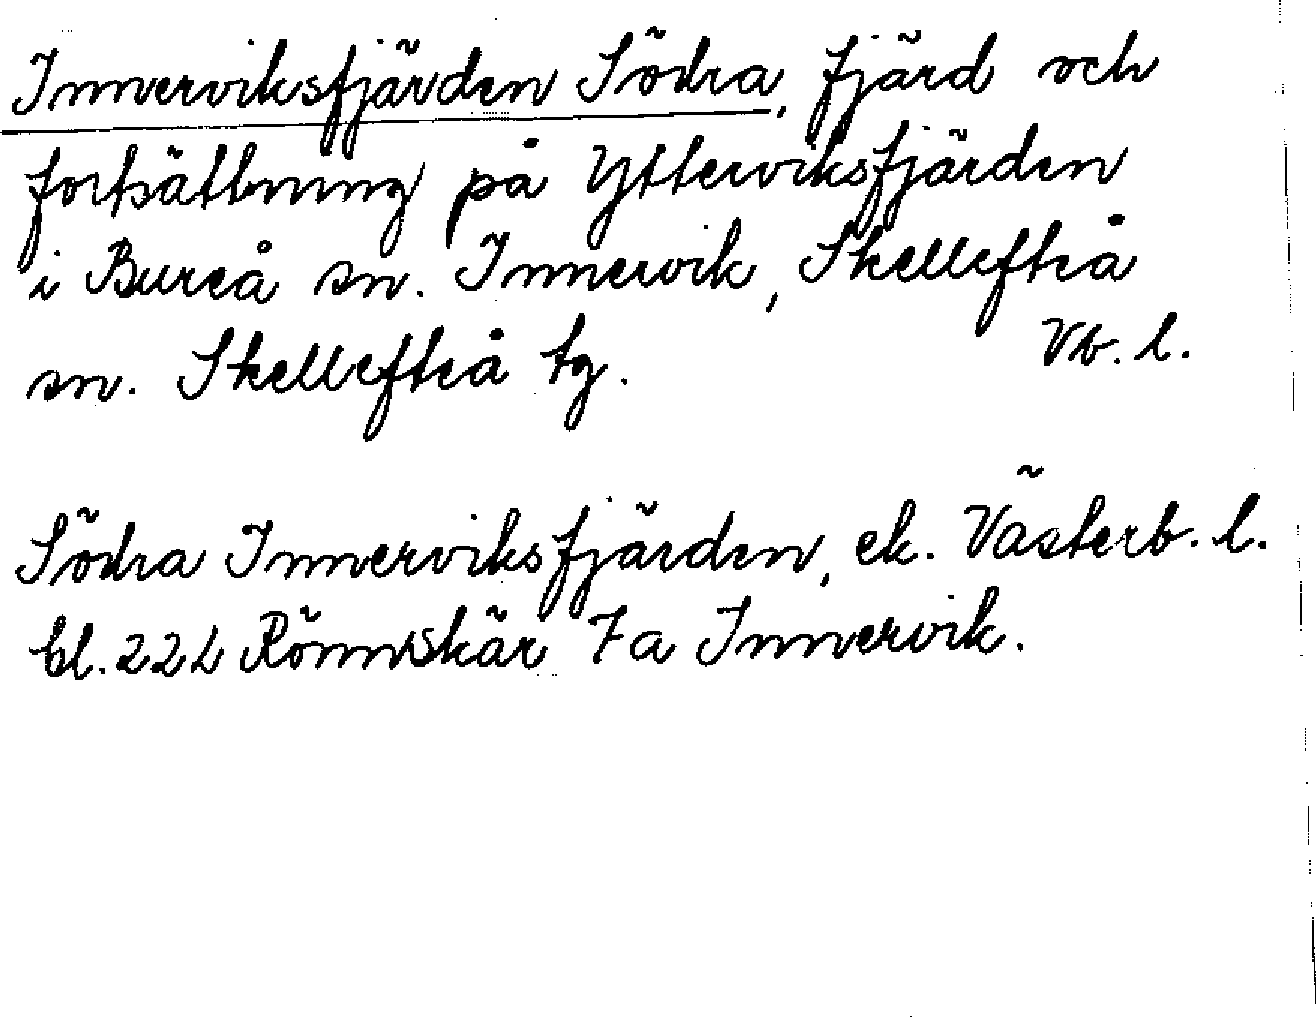 Innerviksfjärden Södra, fjärd och
fortsättning på Ytterviksfjärden
i Bureå sn. Innervik, Skellefteå
sn. Skellefteå tg. Vb. l.
Södra Innerviksfjärden, ek. Västerb. l.
bl. 22L Rönnskär 7a Innervik.